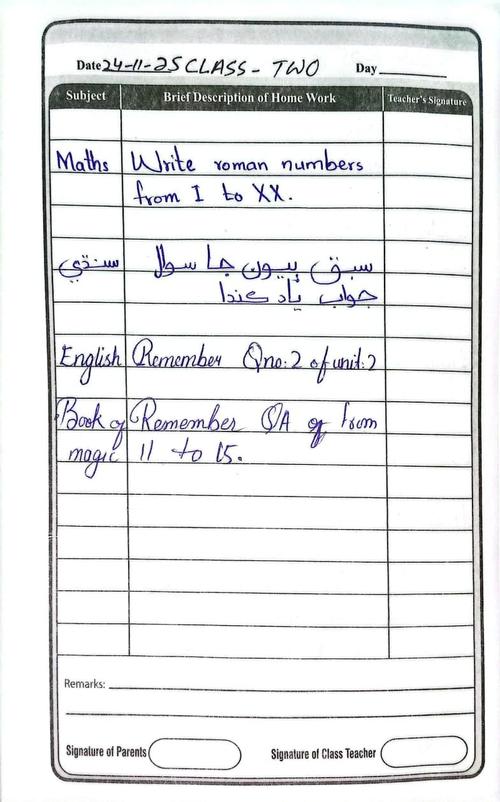 Date 24-11-25 CLASS - TWO Day
Subject Brief Description of Home Work Teacher's Signature
Maths Write roman numbers
from I to XX.
سنڌي سبق ٻيون جا سوال
جواب ياد ڪندا
English Remember Qno:2 of unit:2
Book of Remember Q/A of from
magic 11 to 15.
Remarks:
Signature of Parents Signature of Class Teacher